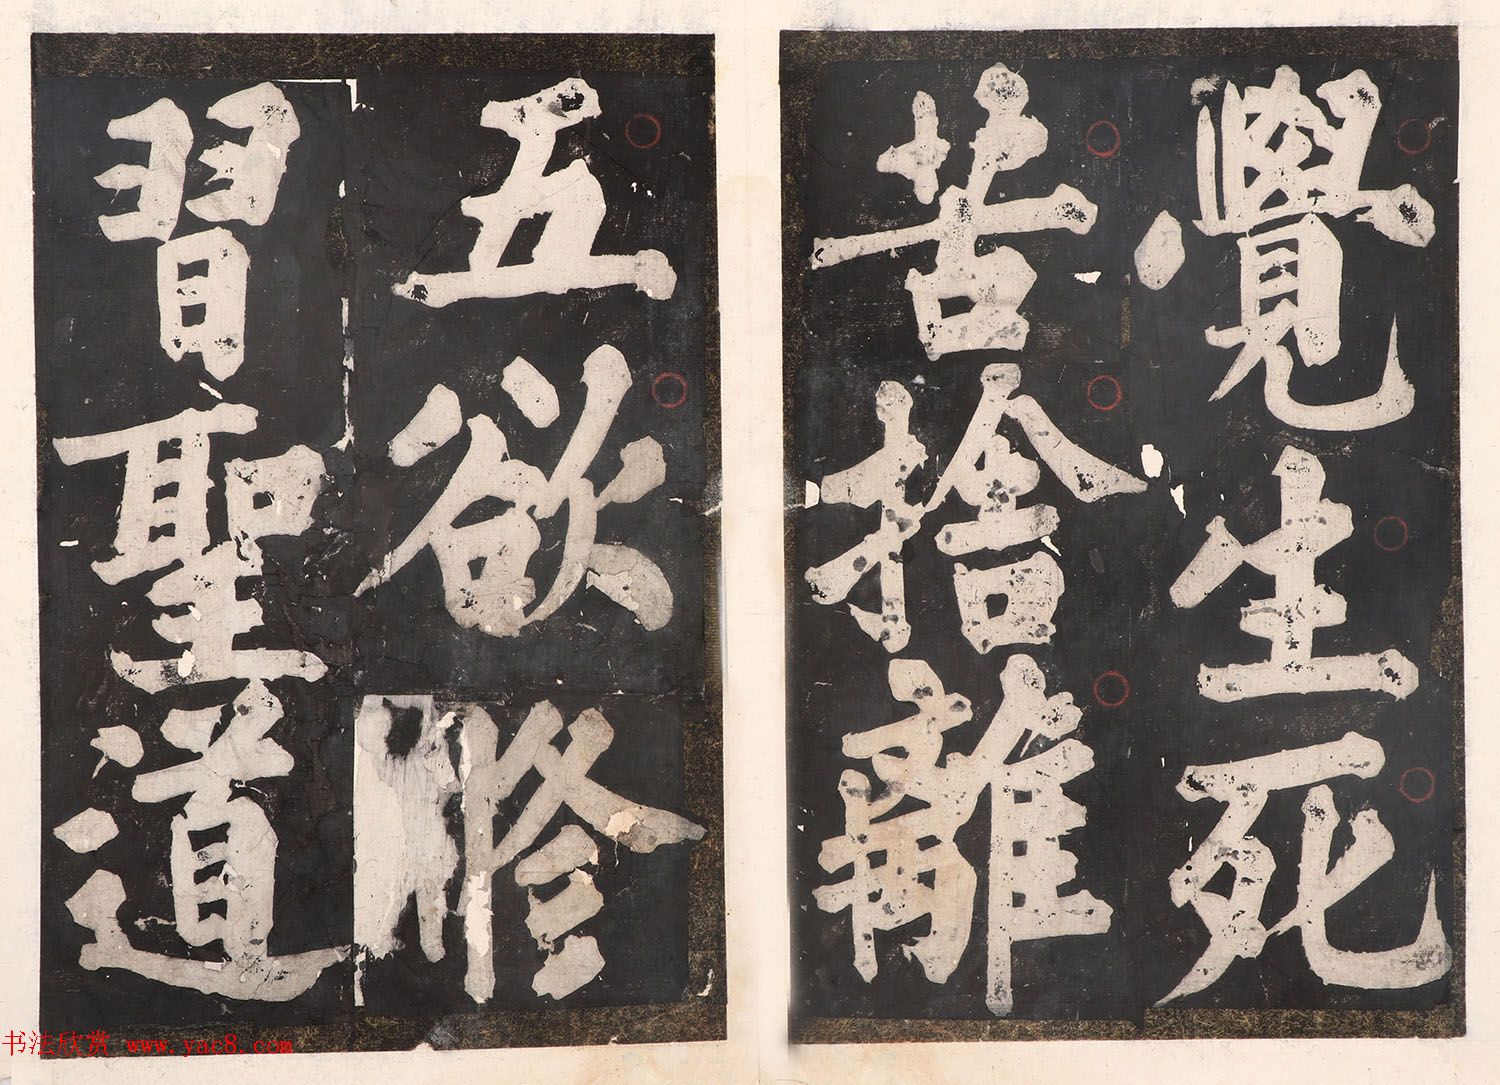 覺生死
苦捨離
五欲修
習聖道
书法欣赏 www.yac8.com